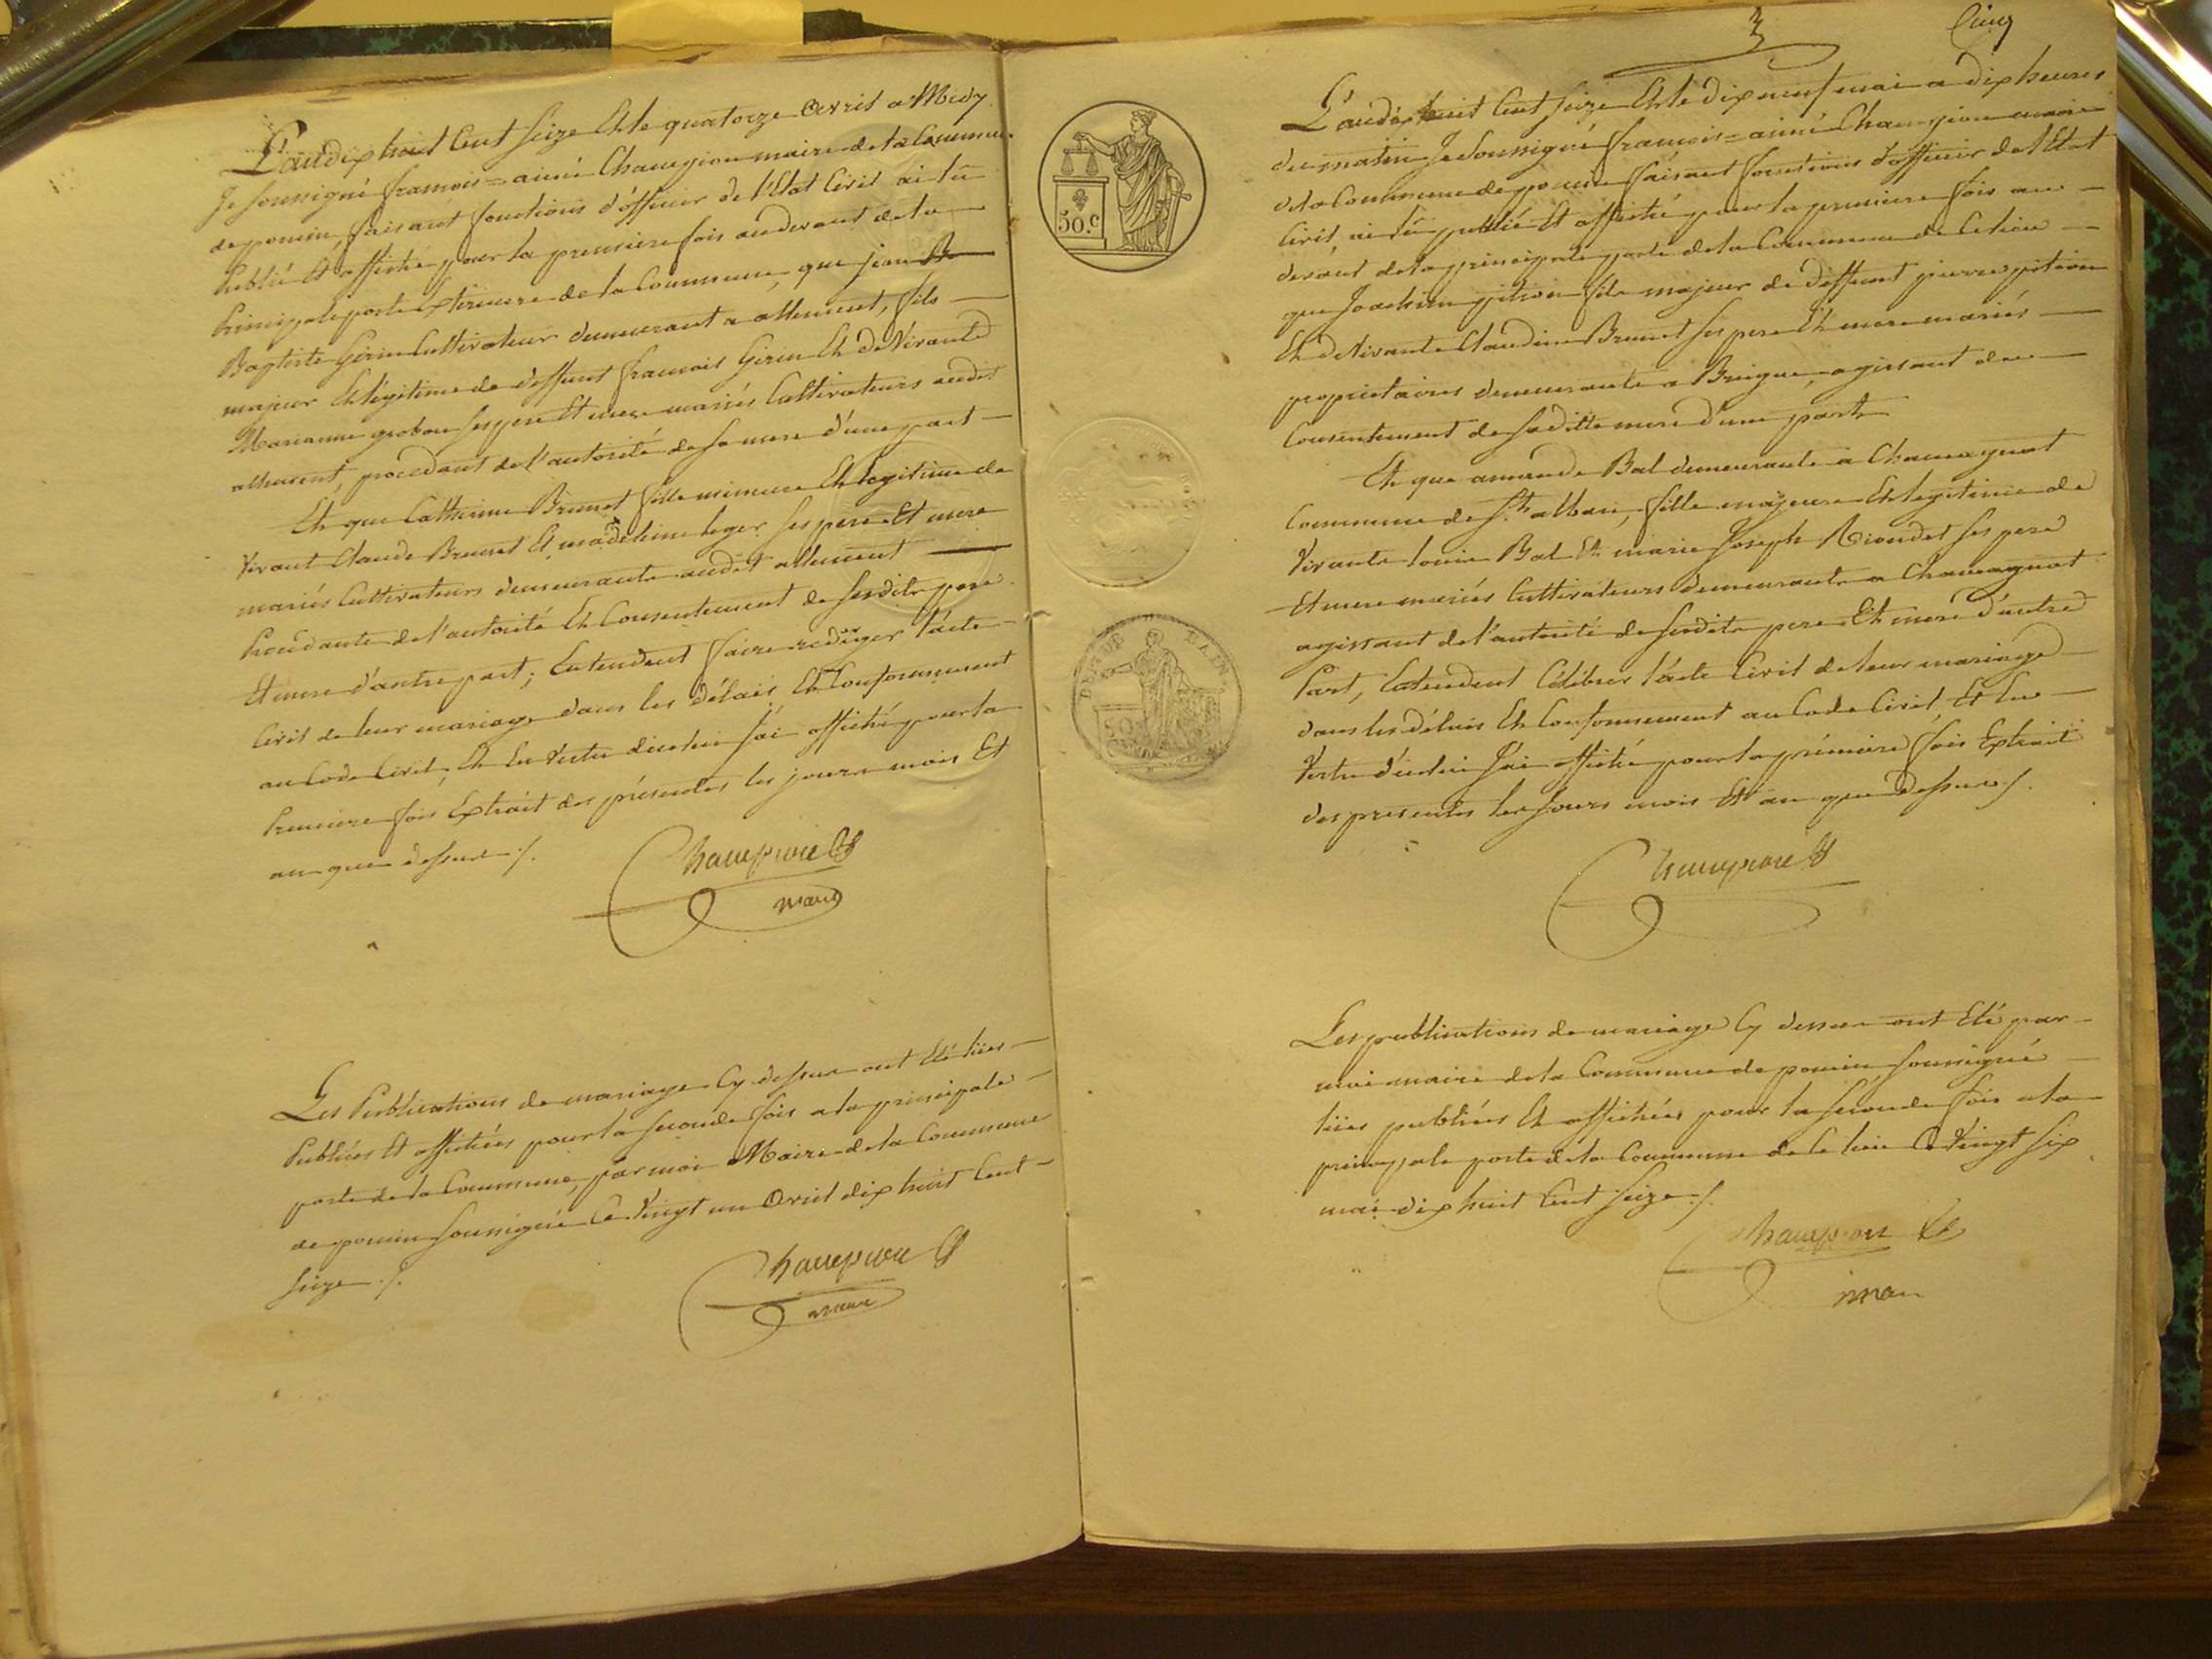 L'an dix huit Cent seize Et le quatorze Avril a Midy
Je soussigné françois=aimé Champion maire de la Commune
de poncin, faisant fonctions d'officier de l'Etat Civil ai lu
Publié Et affiché pour la premiere fois au devant de la
Principale porte Exterieure de la Commune, que jean Bte
Baptiste Girin Cultivateur demeurant a allement, fils
majeur Et légitime de deffunt francois Girin Et de Vivante
Marianne grobon ses pere Et mere mariés Cultivateurs audit
allement, procedant de l'autorité de sa mere d'une part
Et que Catherine Brunet fille mineure Et legitime de
Vivant Claude Brunet Et madeleine leger ses pere Et mere
mariés Cultivateurs demeurants audit allement
Procédante de l'autorité Et Consentement de sesdits pere
Et mere d'autre part; Entendent faire rediger l'acte
Civil de leur mariage dans les délais, Et Conformement
au Code Civil, Et En Vertu d'icelui j'ai affiché pour la
Premiere fois Extrait des présentes les jours mois Et
an que dessus ./.
Champion
maire
Les Publications de mariage Cy dessus ont Eté lües
Publiées Et affichées pour la seconde fois a la principale
porte de la Commune, par moi Maire de la Commune
de poncin soussigné Ce Vingt un Avril dix huit Cent
seize ./.
Champion
maire
Cinq
50.C
L'an dix huit Cent seize Et le dix neuf mai a dix heures
du matin Je soussigné françois=aimé Champion maire
de la Commune de poncin faisant fonctions d'officier de l'Etat
Civil, ai lû publié Et affiché pour la premiere fois au
devant de la principale porte de la Commune de Ce lieu
que Joachim pition fils majeur de deffunt pierre pition
Et de Vivante Claudine Brunet ses pere Et mere mariés
proprietaires demeurants a Breigne, agissant du
Consentement de sa ditte mere d'une part
Et que amande Bal demeurante a Chamagnat
Commune de St. alban, fille majeure Et legitime de
Vivants louis Bal Et marie Joseph Riondet ses pere
Et mere mariés Cultivateurs demeurants a Chamagnat
agissant de l'autorité de sesdits pere Et mere d'autre
Part, Entendent Célébrer l'acte Civil de leur mariage
dans les délais Et Conformement au Code Civil, Et En
Vertu d'icelui j'ai affiché pour la premiere fois Extrait
des presentes les jours mois Et an que dessus ./.
Champion
Les publications de mariage Cy dessus ont Eté par
moi maire de la Commune de poncin soussigné
lües publiées Et affichées pour la seconde fois a la
principale porte de la Commune de Ce lieu Ce Vingt six
mai dix huit Cent seize ./.
Champion
maire